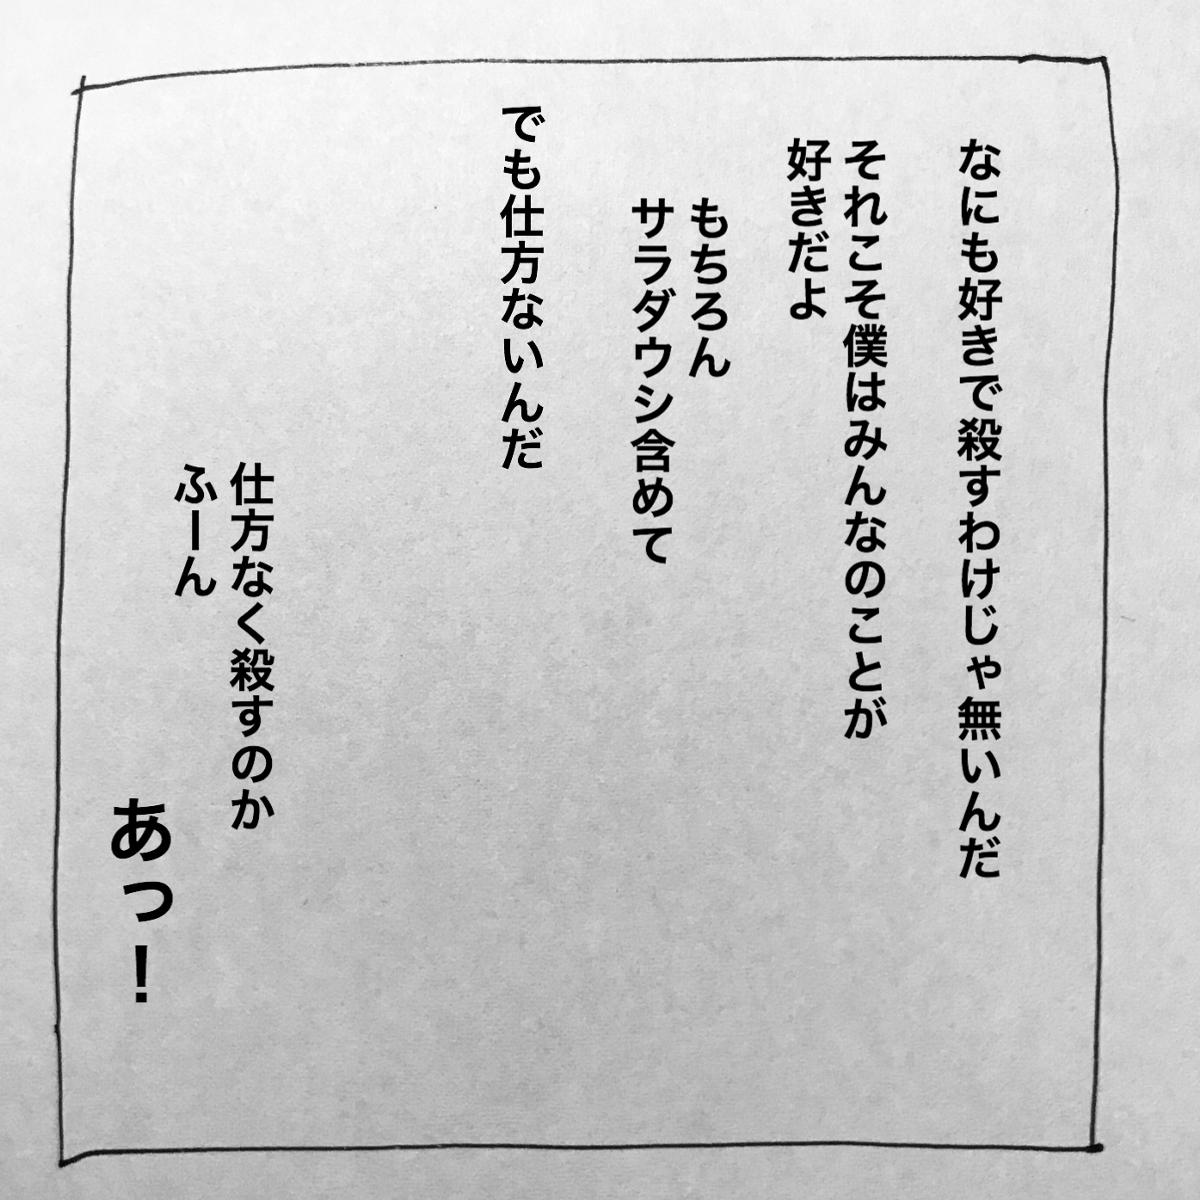 なにも好きで殺すわけじゃ無いんだ
それこそ僕はみんなのことが
好きだよ
もちろん
サラダウシ含めて
でも仕方ないんだ
仕方なく殺すのか
ふーん
あっ！